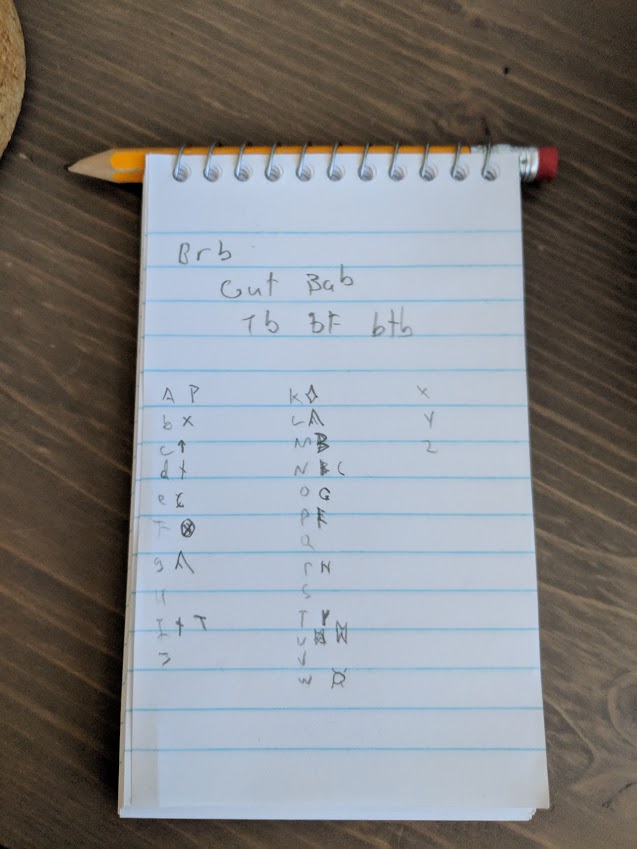 Brb
Gut Bab
Tb BF btb
A P
b x
c ↑
d
e
F
g
H
I T
J
K
L
M B
N C
O G
P F
Q
r N
S
T
U
V
W
X
Y
Z